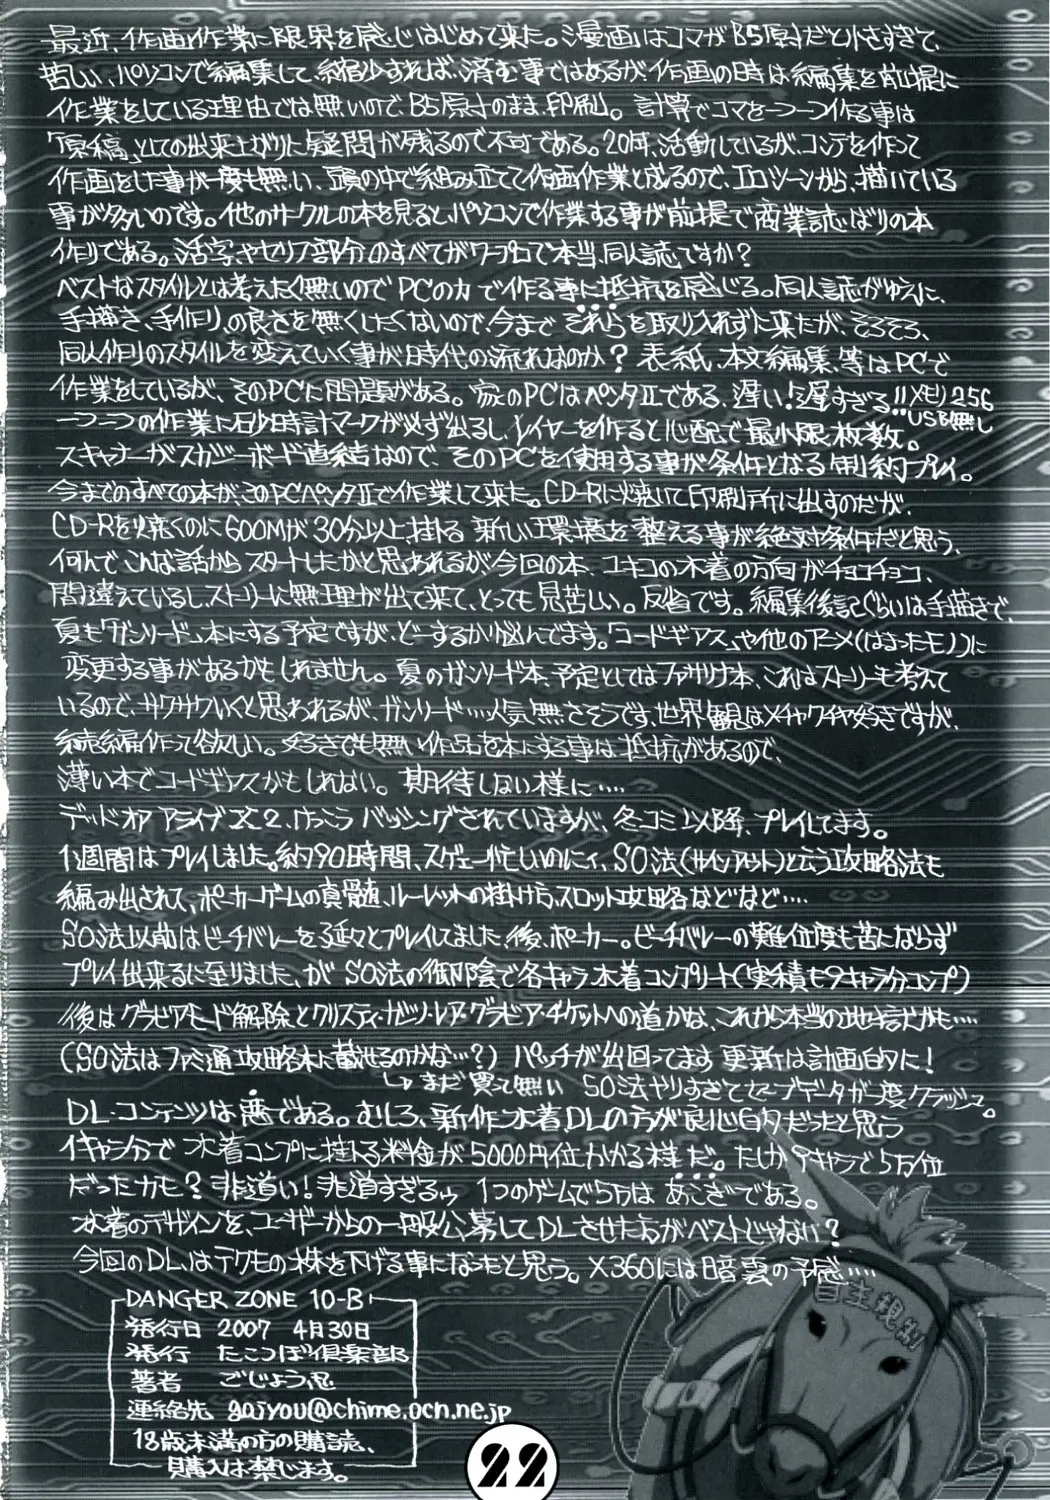 最近、作画作業に限界を感じはじめて来た。漫画はコマがB5原寸だと小さすぎて、
苦しい、パソコンで編集して、縮少すれば、済む事ではあるが、作画の時は編集を前提に
作業をしている理由では無いので、B5原寸のまま、印刷。計算でコマを一つ一つ作る事は
「原稿」としての出来上がりに疑問が残るので不可である。20年、活動しているが、コンテを作って
作画をした事が一度も無い、頭の中で組み立てて作画作業と成るので、エロシーンから、描いている
事が多いのです。他のサークルの本を見ると、パソコンで作業する事が前提で商業誌ばりの本
作りである。活字やセリフ部分のすべてがワープロで本当、同人誌ですか?
ベストなスタイルとは考えたく無いのでPCの力で作る事に抵抗を感じる。同人誌がゆえに、
手描き、手作り、の良さを無くしたくないので、今まで それらを取り入れずに来たが、そろそろ、
同人作りのスタイルを変えていく事が時代の流れなのか? 表紙、本文編集、等はPCで
作業をしているが、そのPCに問題がある。家のPCはペンタⅡである、遅い!遅すぎる!! メモリ256
USB無し
一つ一つの作業に砂時計マークが必ず出るし、レイヤーを作ると心配で最小限枚数。
スキャナーがスカジーボード直結なので、そのPCを使用する事が条件となる制約プレイ。
今までのすべての本が、このPCペンタⅡで作業して来た。CD-Rに焼いて印刷所に出すのだが、
CD-Rを焼くのに600Mが30分以上掛る 新しい環境を整える事が絶対条件だと思う、
何んで、こんな話からスタートしたかと思われるが今回の本、ユキコの水着の方向がチョコチョコ、
間違えているし、ストーリーに無理が出て来て、とっても見苦しい。反省です。編集後記ぐらいは手描きで、
夏も「ガンソード」本にする予定ですが、どーするか悩んでます。「コードギアス」や他のアニメ(はまったモノ)に
変更する事があるかもしれません。夏のガンソード本、予定としてはファサリナ本、これはストーリーも考えて
いるので、サクサクいくと思われるが、ガンソード…人気無さそうです、世界観はメチャクチャ好きですが、
続編作って欲しい。好きでも無い作品を本にする事は抵抗があるので、
薄い本でコードギアスかもしれない。期待しない様に‥‥
デッド オア アライブX2、けっこうバッシングされていますが、冬コミ以降、プレイしてます。
1週間はプレイしました。約90時間、スゲェー忙しいのにィ、SO法(サインアウト)と云う攻略法も
編み出されて、ポーカーゲームの真髄、ルーレットの掛け方、スロット攻略などなど‥‥
SO法以前はビーチバレーを延々とプレイしてました 後、ポーカー。ビーチバレーの難位度も苦にならず
プレイ出来るに至りました、が SO法の御陰で各キャラ、水着コンプリート(実積も9キャラ分コンプ)
後はグラビアモード解除とクリスティ・ガッツ・レア・グラビア・チケットへの道かな、これから本当の地獄かも‥‥
(SO法はファミ通攻略本に載せるのかな…?) パッチが出回ってます 更新は計画的に!
↳まだ買って無い SO法やりすぎてセーブデータが一度クラッシュ。
DL・コンテンツは悪である。むしろ、新作水着DLの方が良心的だったと思う
1キャラ分で 水着コンプに掛る料金が5000円位かかる様だ。たしか9キャラで5万位
だったカモ? 非道い!非道すぎるゥ 1つのゲームで5万は あこぎである。
水着のデザインを、ユーザーからの一般公募してDLさせた方がベストじゃない?
今回のDLはテクモの株を下げる事になったと思う。X360には暗雲の予感‥‥
DANGER ZONE 10-B
発行日 2007 4月30日
発行 たこつぼ倶楽部
著者 ごじょう忍
連絡先 gojyou@chime.ocn.ne.jp
18歳未満の方の購読、
購入は禁じます。
自主規制
22